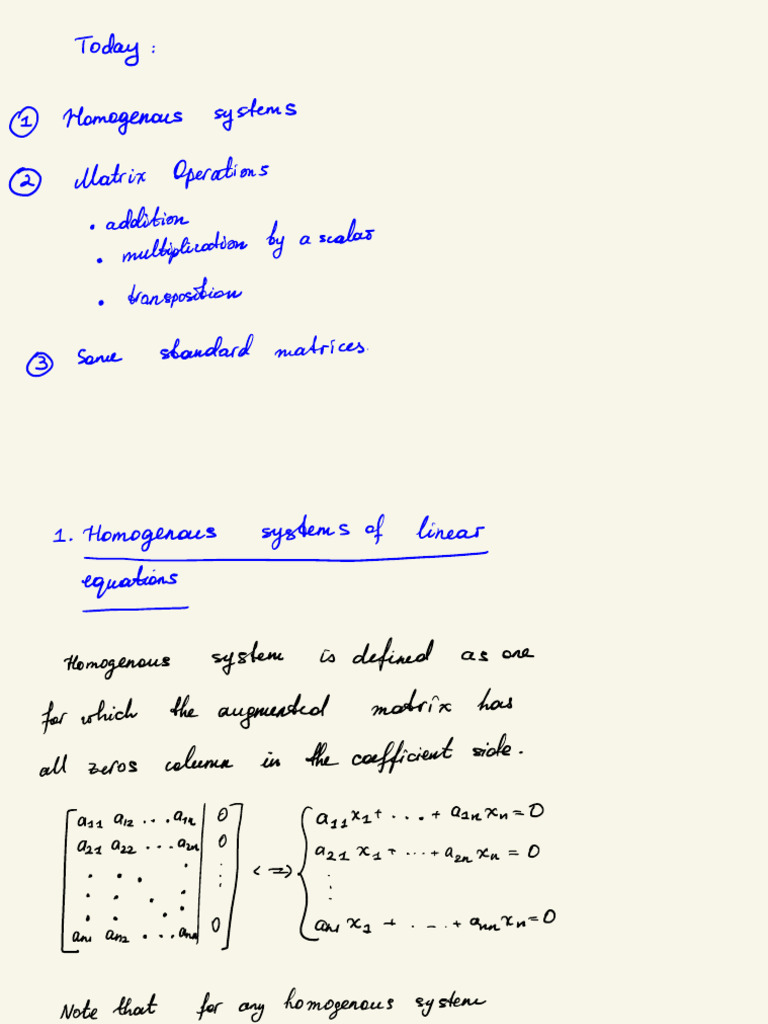 Today :
① Homogenous systems
② Matrix Operations
• addition
• multiplication by a scalar
• transposition
③ Some standard matrices.
1. Homogenous systems of linear
equations
Homogenous system is defined as one
for which the augmented matrix has
all zeros column in the coefficient side.
[a11 a12 ... a1n | 0] { a11 x1 + ... + a1n xn = 0
[a21 a22 ... a2n | 0] <=> { a21 x1 + ... + a2n xn = 0
[an1 an2 ... ann | 0] { an1 x1 + ... + ann xn = 0
Note that for any homogenous system